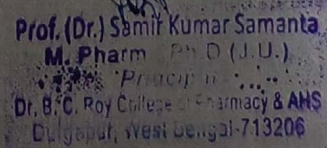 Prof. (Dr.) Samir Kumar Samanta
M. Pharm Ph D (J.U.)
Principal
Dr. B. C. Roy College of Pharmacy & AHS
Durgapur, West Bengal-713206